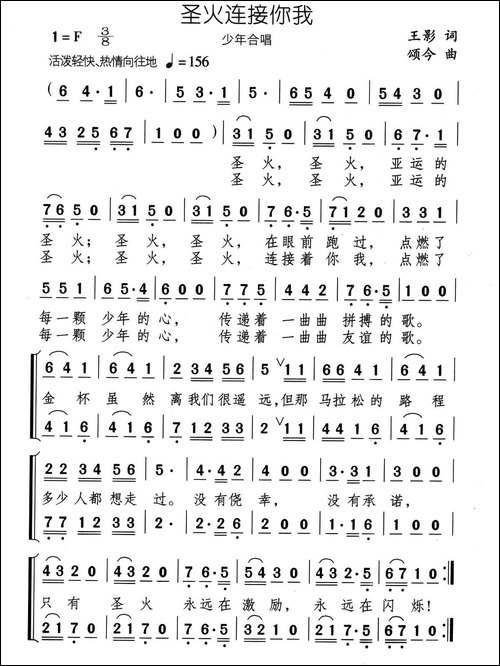 圣火连接你我
1=F 3/8 少年合唱 王影 词
活泼轻快、热情向往地 ♩=156 颂今 曲
( 6 4·1 | 6· | 5·3 1 | 5· | 1·6 5 4 0
4 3 2 5 6 7 | 1 0 0 ) | 3 1 5 0 | 3 1 5 0 | 6 7·1
圣 火， 圣 火， 亚 运 的
圣 火， 圣 火， 亚 运 的
7 6 5 0 | 3 1 5 0 | 3 1 5 0 | 7 6·5 | 7 1 2 0 | 3 3 1
圣 火； 圣 火， 圣 火， 在 眼 前 跑 过， 点 燃 了
圣 火； 圣 火， 圣 火， 连 接 着 你 我， 点 燃 了
5 1 | 6 5·4 | 5 0 0 | 6 7 7 | 7 7 5 | 4 4 2 | 7 6·5 | 1 0 0
每 一 颗 少 年 的 心， 传 递 着 一 曲 曲 拼 搏 的 歌。
每 一 颗 少 年 的 心， 传 递 着 一 曲 曲 友 谊 的 歌。
6 4 1 | 6 4 1 | 2 3 4 5 6 | 5 ∨ 1 1 | 6 4 4 | 6 4 1 | 6 4 1
金 杯 虽 然 离 我 们 很 遥 远，但 那 马 拉 松 的 路 程
4 1 6 | 4 1 6 | 7 1 2 3 3 | 2 ∨ 1 1 | 4 4 4 | 4 1 6 | 4 1 6
2 2 3 4 5 6 | 5· | 4·4 2 | 4 0 0 | 3·3 1 | 5 0 0
多 少 人 都 想 走 过。 没 有 侥 幸， 没 有 承 诺，
7 7 1 2 3 3 | 2· | 2·2 6 | 2 0 0 | 1·1 6 | 5 0 0
4 3 2 0 | 4 3 2 0 | 7 6·5 | 5 4 3 0 | 1 3 0 | 7 6·5 | 6 7 1 0 :||
只 有 圣 火 永 远 在 激 励， 永 远 在 闪 烁！
2 1 7 0 | 2 1 7 0 | 7 6·5 | 3 2 1 0 | 5 1 0 | 7 6·5 | 6 7 1 0 :||